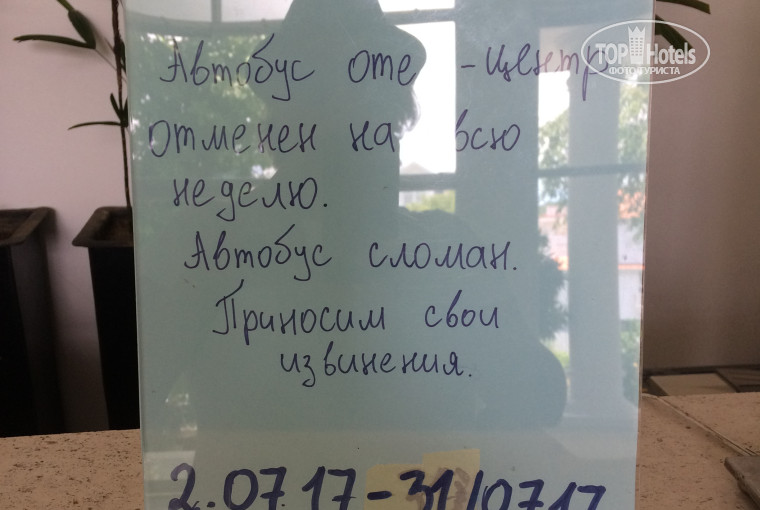 TOP Hotels
ФОТО ТУРИСТА
Автобус оте -центр
отменен на всю
неделю.
Автобус сломан.
Приносим свои
извинения.
2.07.17-31/0717